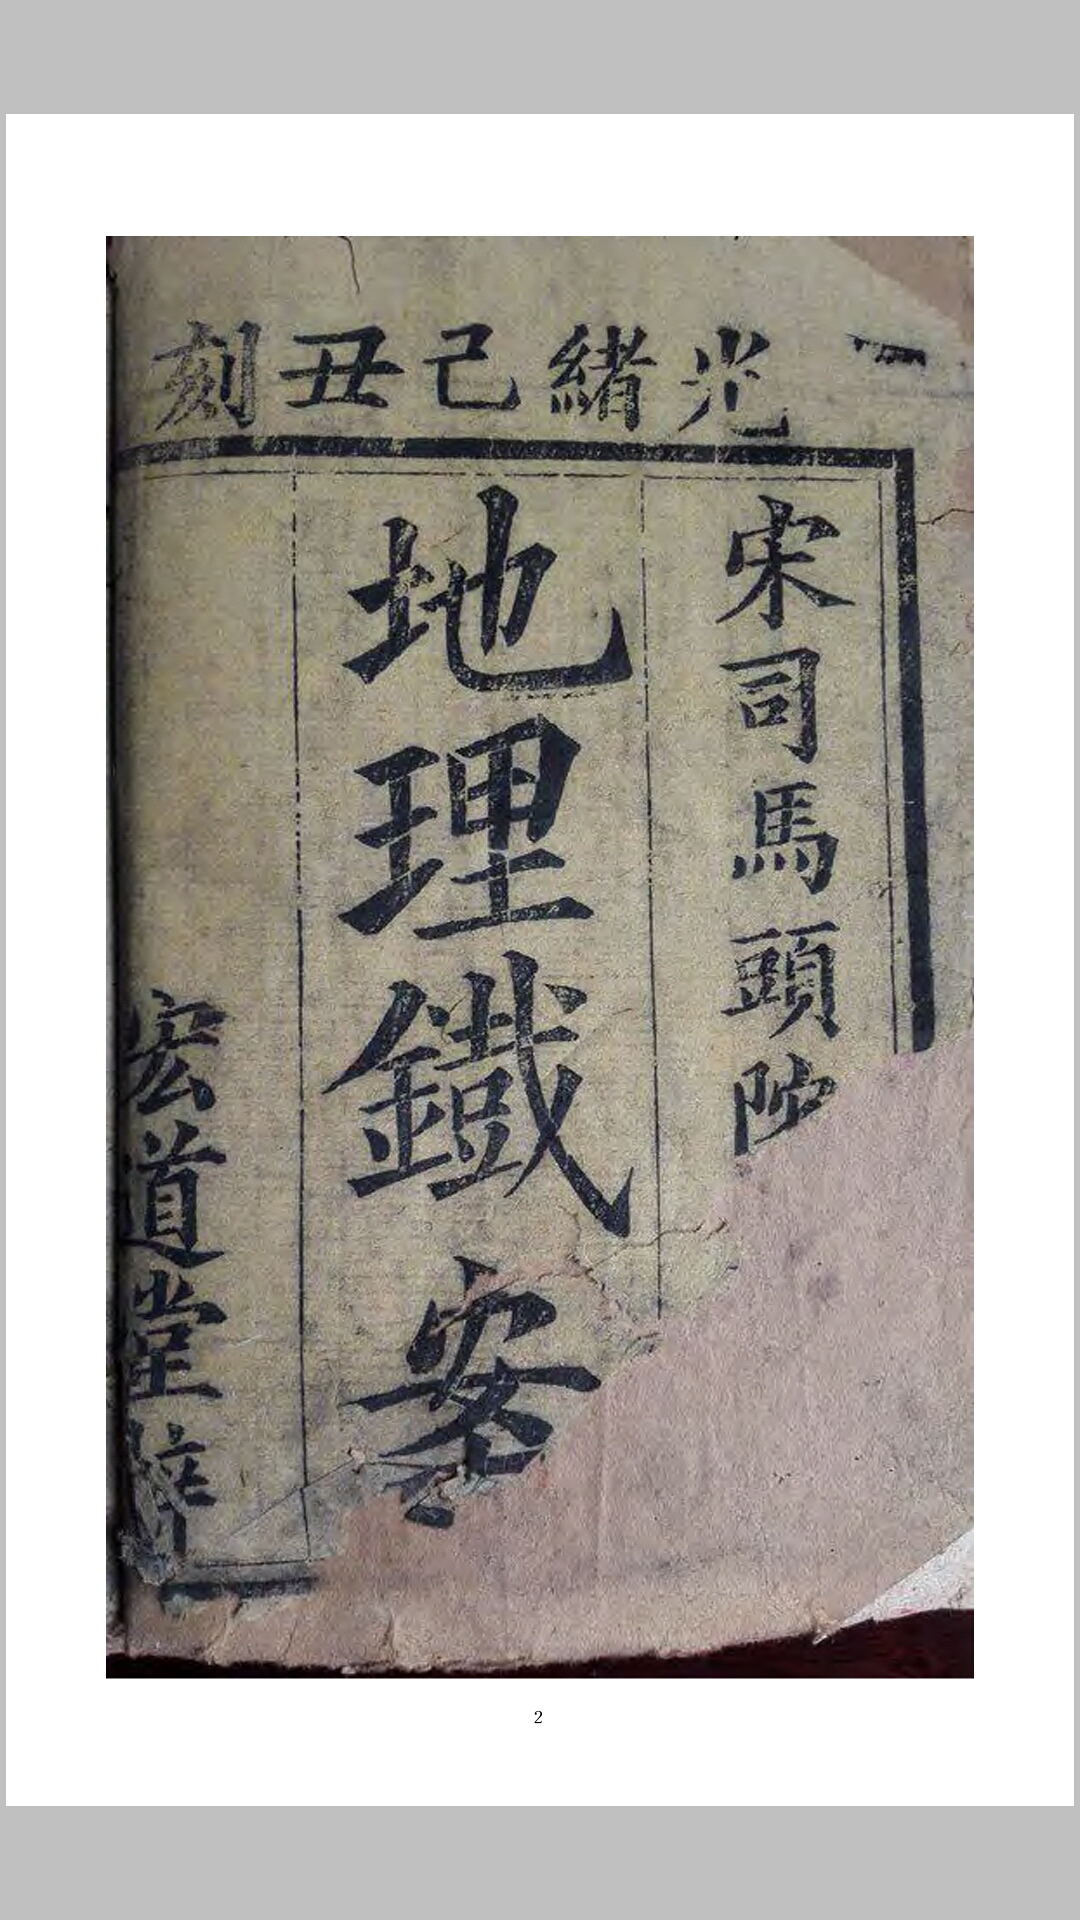 光緒己丑刻
宋司馬頭陀
地理鐵案
宏道堂梓
2